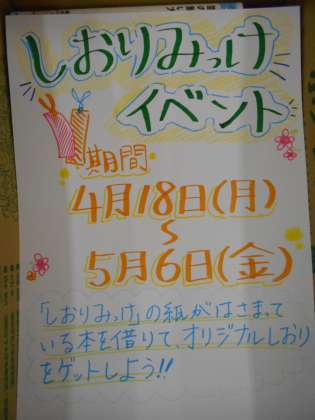 しおりみっけ
イベント
期間
4月18日(月)
～
5月6日(金)
「しおりみっけ」の紙がはさまって
いる本を借りて、オリジナルしおり
をゲットしよう!!